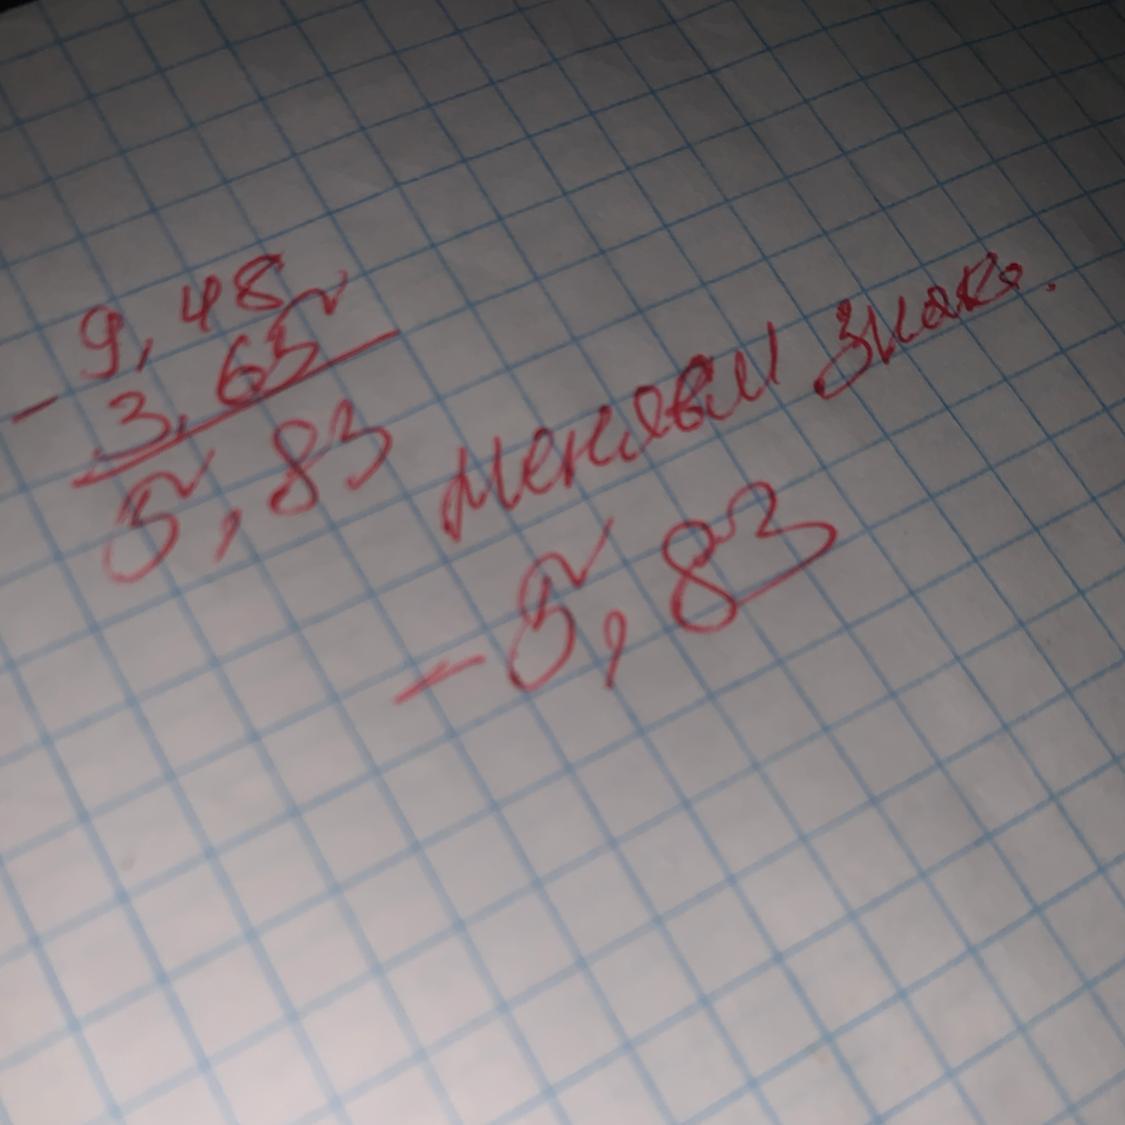 - 9,48
3,65
5,83
меняем знак.
-5,83